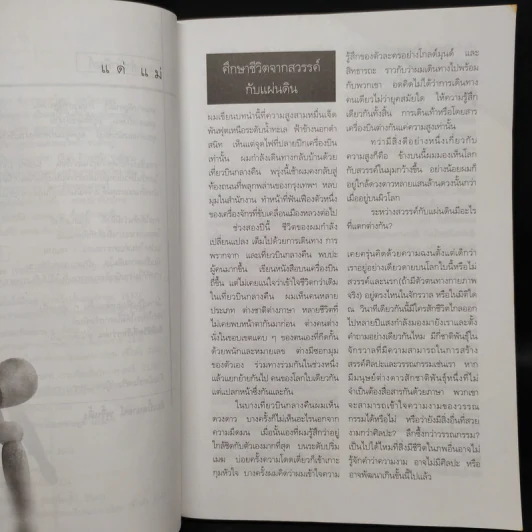 แ ด่ แ ม่
ศึกษาชีวิตจากสวรรค์
กับแผ่นดิน
ผมเขียนบทนำนี้ที่ความสูงสามหมื่นเจ็ด
พันฟุตเหนือระดับน้ำทะเล ฟ้าข้างนอกดำ
สนิท เห็นแต่จุดไฟที่ปลายปีกเครื่องบิน
เท่านั้น ผมกำลังเดินทางกลับบ้านด้วย
เที่ยวบินกลางคืน พรุ่งนี้เช้าผมคงกลับสู่
ท้องถนนที่พลุกพล่านของกรุงเทพฯ หลบ
มุมในสำนักงาน ทำหน้าที่ฟันเฟืองตัวหนึ่ง
ของเครื่องจักรที่ขับเคลื่อนเมืองหลวงต่อไป
ช่วงสองปีนี้ ชีวิตของผมกำลัง
เปลี่ยนแปลง เติมไปด้วยการเดินทาง การ
พรากจาก และเที่ยวบินกลางคืน พบปะ
ผู้คนมากขึ้น เขียนหนังสือบนเครื่องบิน
ถี่ขึ้น แต่ไม่เคยแน่ใจว่าเข้าใจชีวิตกว่าเดิม
ในเที่ยวบินกลางคืน ผมเห็นคนหลาย
ประเภท ต่างชาติต่างภาษา หลายชีวิตที่
ไม่เคยพบหน้ากันมาก่อน ต่างคนต่าง
นั่งในขอบเขตแคบ ๆ ของตนเองที่กีดกั้น
ด้วยพนักและหมายเลข ต่างมีซอกมุม
ของตัวเอง ร่วมทางรวมกันในช่วงหนึ่ง
แล้วแยกย้ายกันไป คนของโลกใบเดียวกัน
แต่แปลกหน้าซึ่งกันและกัน
ในบางเที่ยวบินกลางคืนผมเห็น
ดวงดาว บางครั้งก็ไม่เห็นอะไรนอกจาก
ความมืดมน เมื่อนั้นเองที่ผมรู้สึกว่าอยู่
ใกล้ชิดกับตัวเองมากที่สุด บนระดับปริ่ม
เมฆ บ่อยครั้งความโดดเดี่ยวก็เข้าเกาะ
กุมหัวใจ บางครั้งผมคิดว่าผมเข้าใจความ
รู้สึกของตัวละครอย่างโกลด์มุนด์ และ
สิทธารถะ ราวกับว่าผมเดินทางไปพร้อม
กับพวกเขา อดคิดไม่ได้ว่าการเดินทาง
คนเดียวไม่ว่ายุคสมัยใด ให้ความรู้สึก
เดียวกันทั้งสิ้น การเดินเท้าหรือโดยสาร
เครื่องบินต่างกันแค่ความสูงเท่านั้น
ทว่ามีสิ่งดีอย่างหนึ่งเกี่ยวกับ
ความสูงก็คือ ข้างบนนี้ผมมองเห็นโลก
กับสวรรค์ในมุมกว้างขึ้น อย่างน้อยผมก็
อยู่ใกล้ดวงดาวหลายแสนล้านดวงนั้นกว่า
เมื่ออยู่บนผิวโลก
ระหว่างสวรรค์กับแผ่นดินมีอะไร
ที่แตกต่างกัน?
เคยครุ่นคิดด้วยความฉงนตั้งแต่เด็กว่า
เราอยู่อย่างเดียวดายบนโลกใบนี้หรือไม่
สวรรค์และนรก (ถ้ามีตัวตนทางกายภาพ
จริง) อยู่ตรงไหนในจักรวาล หรือในมิติใด
ณ วินาทีเดียวกันนี้มีใครสักชีวิตไกลออก
ไปหลายปีแสงกำลังมองมายังเราและตั้ง
คำถามอย่างเดียวกันไหม มีกี่ชาติพันธุ์ใน
จักรวาลที่มีความสามารถในการสร้าง
สรรค์ศิลปะและวรรณกรรมเช่นเรา หาก
มีมนุษย์ต่างดาวสักชาติพันธุ์หนึ่งที่ไม่
จำเป็นต้องสื่อสารกันด้วยภาษา พวกเขา
จะสามารถเข้าใจความงามของวรรณ
กรรมได้หรือไม่ หรือว่ายังมีสิ่งอื่นที่สวย
งามกว่าศิลปะ? ลึกซึ้งกว่าวรรณกรรม?
เป็นไปได้ไหมที่สิ่งมีชีวิตในภพอื่นอาจไม่
รู้จักคำว่าความงาม อาจไม่มีศิลปะ หรือ
อาจพัฒนาเกินขั้นนี้ไปแล้ว